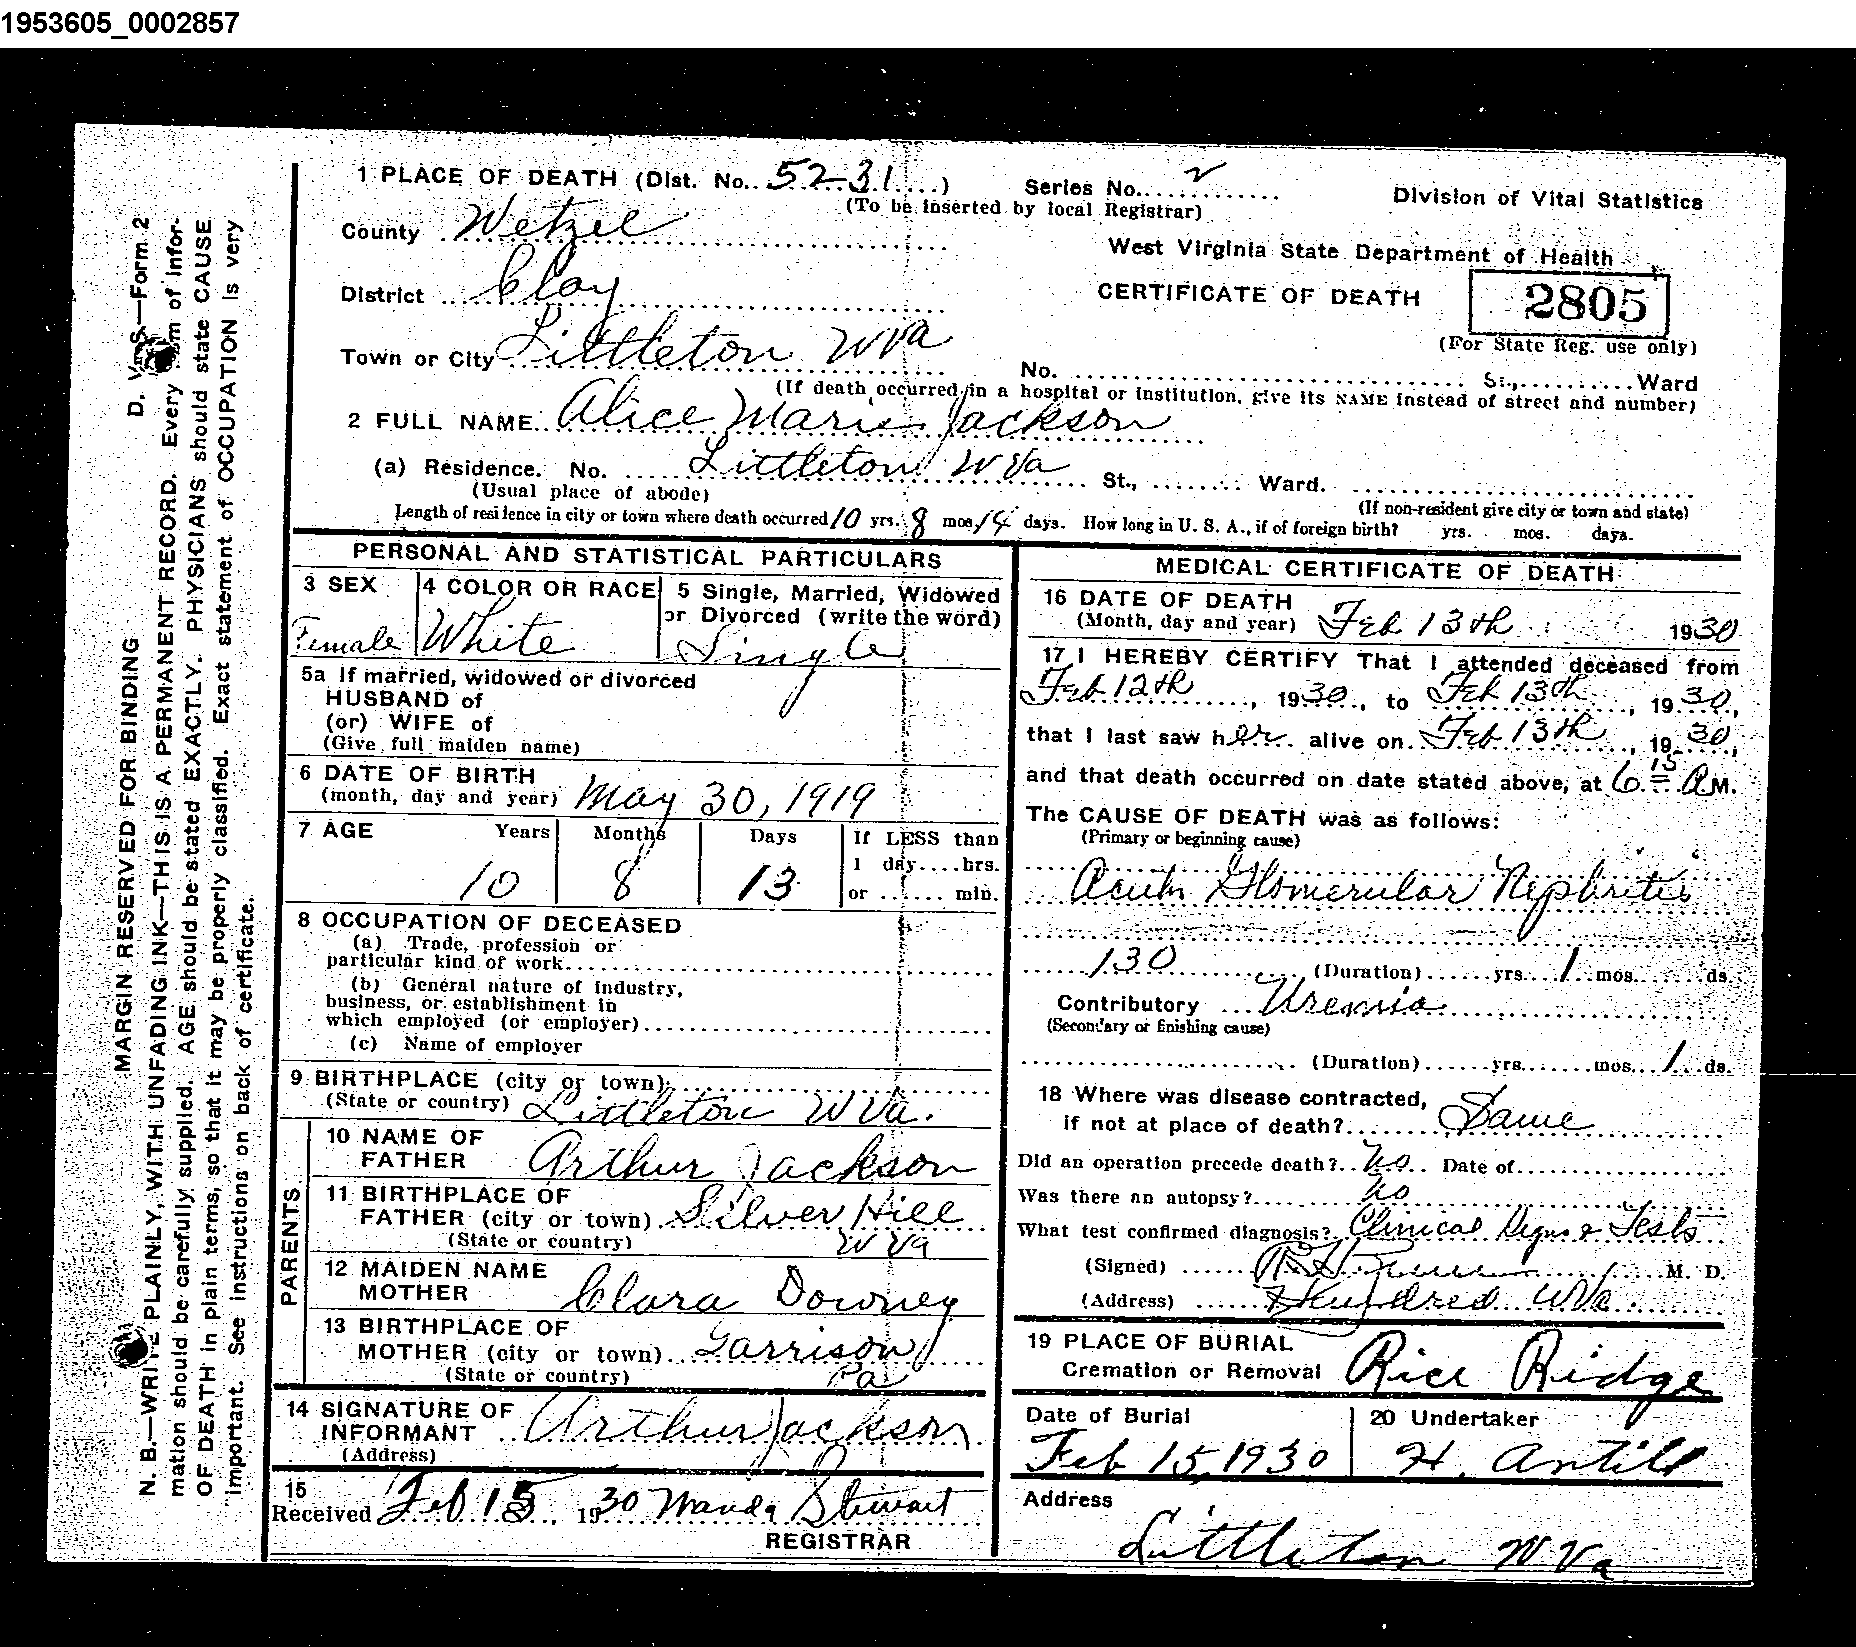 1953605_0002857
1 PLACE OF DEATH (Dist. No. 5231) Series No. 2 Division of Vital Statistics
(To be inserted by local Registrar)
County Wetzel
West Virginia State Department of Health
District Clay
CERTIFICATE OF DEATH 2805
(For State Reg. use only)
Town or City Littleton WVa
No. St., Ward
(If death occurred in a hospital or institution, give its NAME instead of street and number)
2 FULL NAME Alice Marie Jackson
(a) Residence. No. Littleton WVa St., Ward.
(Usual place of abode) (If non-resident give city or town and state)
Length of residence in city or town where death occurred 10 yrs. 8 mos. 14 days. How long in U. S. A., if of foreign birth? yrs. mos. days.
PERSONAL AND STATISTICAL PARTICULARS
3 SEX 4 COLOR OR RACE 5 Single, Married, Widowed
or Divorced (write the word)
Female White Single
5a If married, widowed or divorced
HUSBAND of
(or) WIFE of
(Give full maiden name)
6 DATE OF BIRTH
(month, day and year) May 30, 1919
7 AGE Years Months Days If LESS than
1 day....hrs.
10 8 13 or ...... min.
8 OCCUPATION OF DECEASED
(a) Trade, profession or
particular kind of work
(b) General nature of industry,
business, or establishment in
which employed (or employer)
(c) Name of employer
9 BIRTHPLACE (city or town)
(State or country) Littleton WVa.
PARENTS
10 NAME OF
FATHER Arthur Jackson
11 BIRTHPLACE OF
FATHER (city or town) Silver Hill
(State or country) WVa
12 MAIDEN NAME
MOTHER Clara Downey
13 BIRTHPLACE OF
MOTHER (city or town) Garrison
(State or country) Pa
14 SIGNATURE OF
INFORMANT Arthur Jackson
(Address)
15
Received Feb 15 1930 Manda Stewart
REGISTRAR
MEDICAL CERTIFICATE OF DEATH
16 DATE OF DEATH
(Month, day and year) Feb 13th 1930
17 I HEREBY CERTIFY That I attended deceased from
Feb 12th, 1930, to Feb 13th, 1930,
that I last saw her alive on Feb 13th, 1930,
and that death occurred on date stated above, at 6 15 A M.
The CAUSE OF DEATH was as follows:
(Primary or beginning cause)
Acute Glomerular Nephritis
130 (Duration) yrs. 1 mos. ds.
Contributory Uremia
(Secondary or finishing cause)
(Duration) yrs. mos. 1 ds.
18 Where was disease contracted,
if not at place of death? Same
Did an operation precede death? No Date of
Was there an autopsy? No
What test confirmed diagnosis? Clinical Signs & Tests
(Signed) M. D.
(Address) Hundred WVa.
19 PLACE OF BURIAL
Cremation or Removal Rice Ridge
Date of Burial 20 Undertaker
Feb 15, 1930 H. Antill
Address
Littleton W Va
D. V. S.—Form 2
MARGIN RESERVED FOR BINDING
N. B.—WRITE PLAINLY, WITH UNFADING INK—THIS IS A PERMANENT RECORD. Every item of infor-
mation should be carefully supplied. AGE should be stated EXACTLY. PHYSICIANS should state CAUSE
OF DEATH in plain terms, so that it may be properly classified. Exact statement of OCCUPATION is very
important. See instructions on back of certificate.